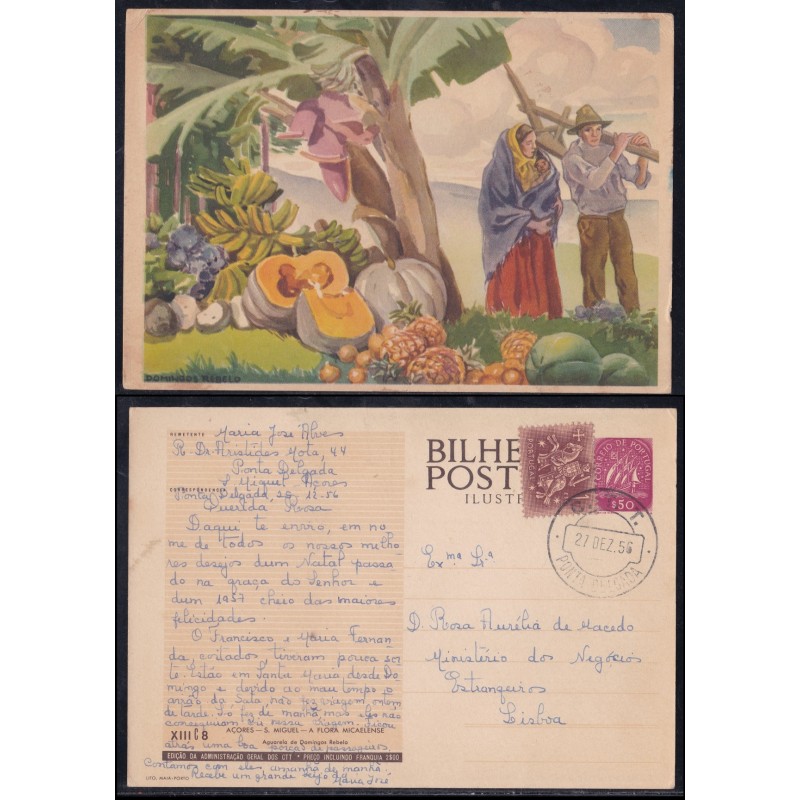 DOMINGOS REBELO
REMETENTE
Maria José Alves
R. Dr. Aristides Mota, 44
Ponta Delgada
S. Miguel - Açores
CORRESPONDÊNCIA
Ponta Delgada, 26-12-56
Querida Rosa
Daqui te envio, em no
me de todos os nossos melho
res desejos dum Natal passa
do na graça do Senhor e
dum 1957 cheio das maiores
felicidades.
O Francisco e Maria Fernan
da, coitados, tiveram pouca sor
te. Estão em Santa Maria desde Do
mingo e devido ao mau tempo o
avião da Sata não fez viagem ontem
de tarde. Só fez de manhã mas eles não
conseguiram vir nessa viagem. Ficou
XIII C 8
AÇORES — S. MIGUEL — A FLORA MICAELENSE
Aguarela de Domingos Rebelo
atrás uma boa porção de passageiros.
EDIÇÃO DA ADMINISTRAÇÃO GERAL DOS CTT * PREÇO INCLUINDO FRANQUIA 1$00
Contamos com eles amanhã de manhã.
LITO. MAIA-PORTO
Recebe um grande beijo da
Maria José
BILHE
POST
ILUSTR
CORREIO DE PORTUGAL
$50
27 DEZ. 56
PONTA DELGADA
Exma Sra
D. Rosa Aurélia de Macedo
Ministério dos Negócios
Estrangeiros
Lisboa